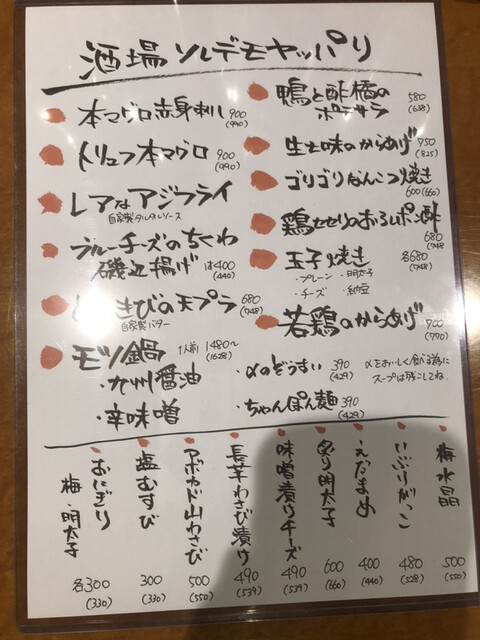 酒場ソルデモヤッパリ
本マグロ赤身刺し 900
(990)
トリュフ本マグロ 900
(990)
レアなアジフライ
自家製タルタルソース
ブルーチーズのちくわ
磯辺揚げ 1本400
(440)
きびの天プラ 680
(748)
自家製バター
モツ鍋 1人前 1480〜
(1628)
・九州醤油
・辛味噌
鴨と酢橘の 580
(638)
ポテサラ
生土味のからあげ 750
(825)
ゴリゴリなんこつ焼き
600(660)
鶏せせりのおろしポン酢
680
(748)
玉子焼き 各680
(748)
・プレーン ・明太子
・チーズ ・納豆
若鶏のからあげ 700
(770)
〆のぞうすい 390
(429)
・ちゃんぽん麺 390
(429)
〆をおいしく食べる為に
スープは残こしてね。
梅水晶 500
(550)
いぶりがっこ 480
(528)
えだまめ 400
(440)
炙り明太子 600
(660)
味噌漬けチーズ 490
(539)
長芋わさび漬け 490
(539)
アボカド山わさび 500
(550)
塩むすび 300
(330)
おにぎり
梅・明太子 各300
(330)